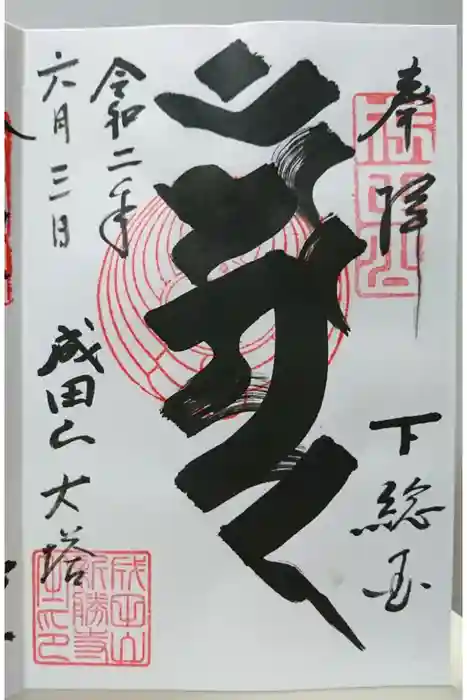 奉拝
下総国
令和二年
六月三日
成田山大塔
成田山
新勝寺